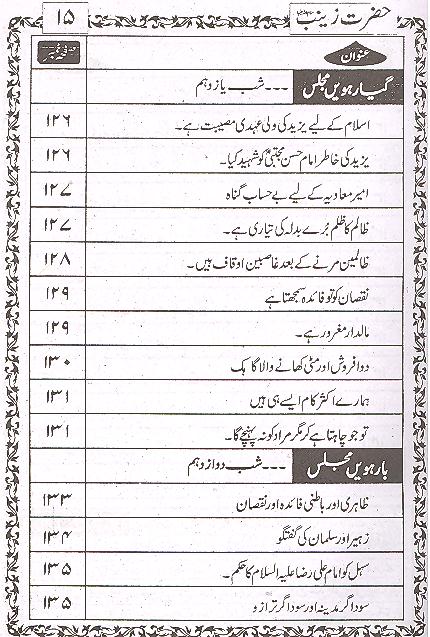 حضرت زینب ۱۵
عنوان صفحہ نمبر
گیارہویں مجلس ۔۔۔ شب یازدہم
اسلام کے لیے یزید کی ولی عہدی مصیبت ہے۔ ۱۲۶
یزید کی خاطر امام حسن مجتبیٰ کو شہید کیا۔ ۱۲۶
امیر معاویہ کے لیے بے حساب گناہ ۱۲۷
ظالم کا ظلم بُرے بدلہ کی تیاری ہے۔ ۱۲۷
ظالمین مرنے کے بعد غاصبین اوقاف ہیں۔ ۱۲۸
نقصان کو تو فائدہ سمجھتا ہے ۱۲۹
مالدار مغرور ہے۔ ۱۲۹
دوا فروش اور مٹی کھانے والا گاہک ۱۳۰
ہمارے اکثر کام ایسے ہی ہیں ۱۳۱
تو جو چاہتا ہے کر مگر مراد کو نہ پہنچے گا۔ ۱۳۱
بارہویں مجلس ۔۔۔ شب دوازدہم
ظاہری اور باطنی فائدہ اور نقصان ۱۳۳
زہیر اور سلمان کی گفتگو ۱۳۴
سہل کو امام علی رضا علیہ السلام کا حکم۔ ۱۳۵
سوداگر مدینہ اور سوداگر ترازو ۱۳۵